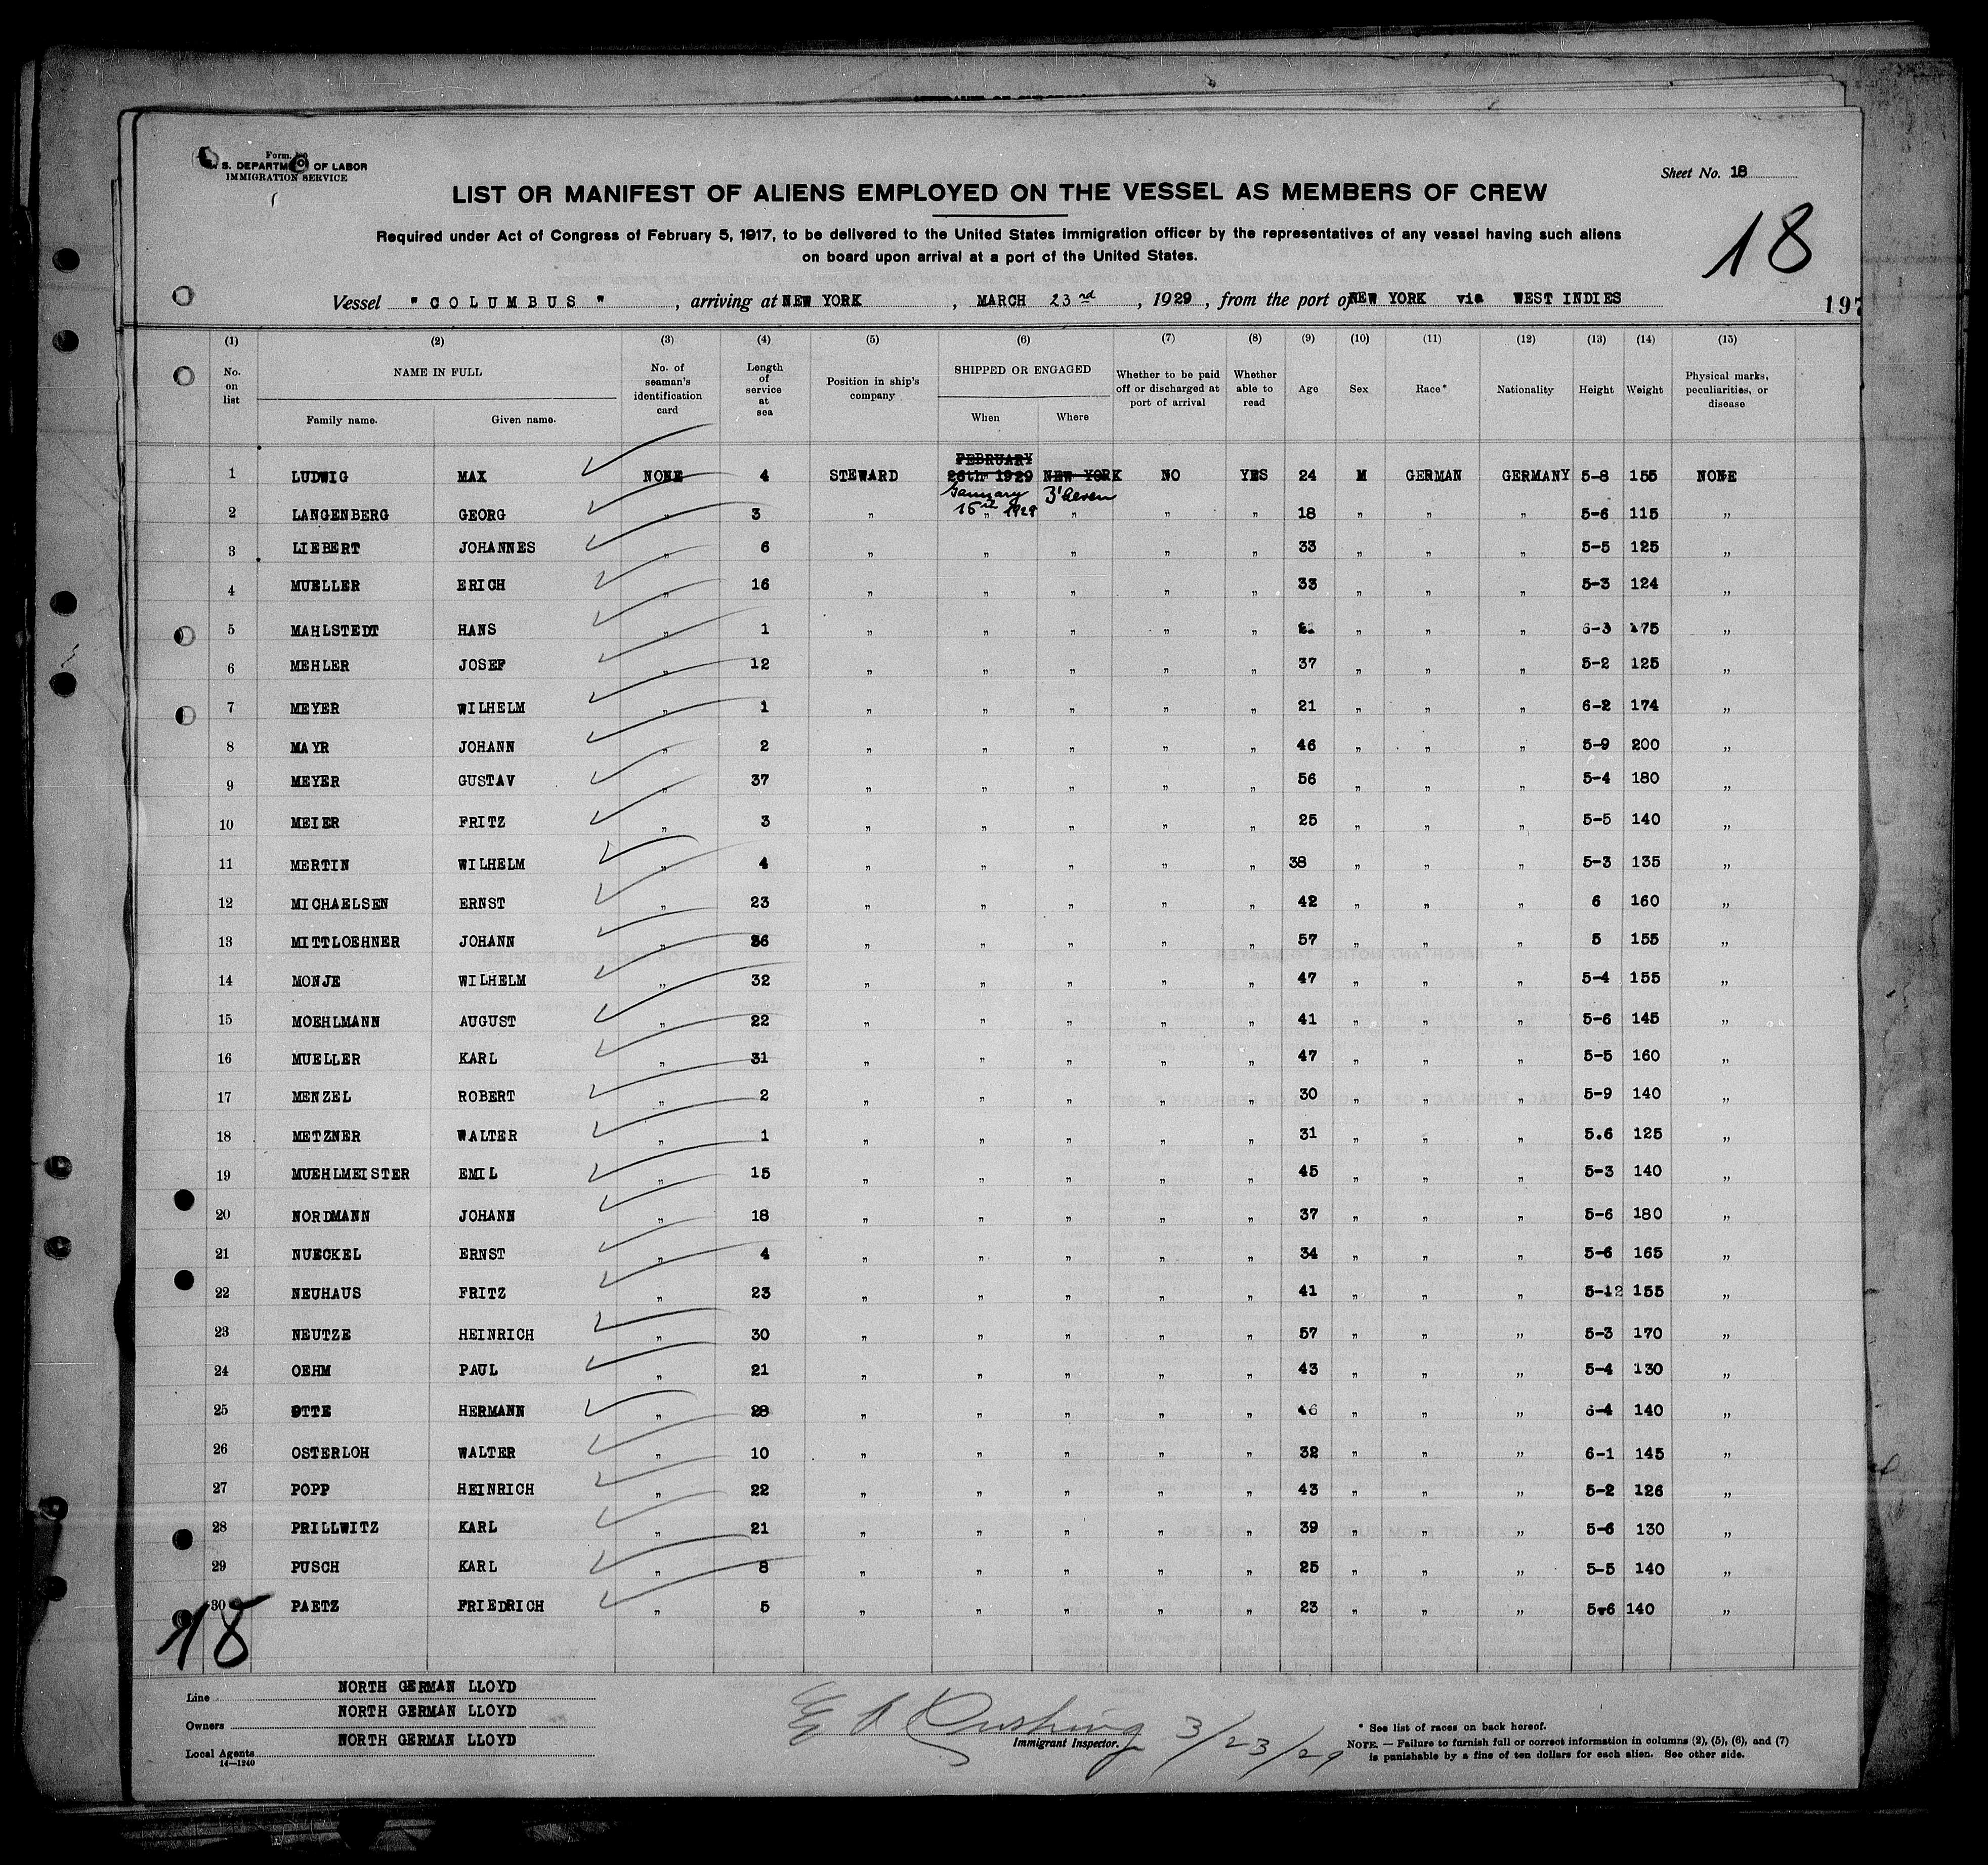 Form
S. DEPARTM OF LABOR
IMMIGRATION SERVICE
Sheet No. 18
LIST OR MANIFEST OF ALIENS EMPLOYED ON THE VESSEL AS MEMBERS OF CREW
18
Required under Act of Congress of February 5, 1917, to be delivered to the United States immigration officer by the representatives of any vessel having such aliens
on board upon arrival at a port of the United States.
Vessel "COLUMBUS", arriving at NEW YORK, MARCH 23rd, 1929, from the port of NEW YORK via WEST INDIES
197
(1) (2) (3) (4) (5) (6) (7) (8) (9) (10) (11) (12) (13) (14) (15)
No. on list NAME IN FULL Family name. Given name. No. of seaman's identification card Length of service at sea Position in ship's company SHIPPED OR ENGAGED When Where Whether to be paid off or discharged at port of arrival Whether able to read Age Sex Race* Nationality Height Weight Physical marks, peculiarities, or disease
FEBRUARY
1 LUDWIG MAX NONE 4 STEWARD 26th 1929 NEW YORK NO YES 24 M GERMAN GERMANY 5-8 155 NONE
January B'haven
15th 1929
2 LANGENBERG GEORG " 3 " " " " " 18 " " " 5-6 115 "
3 LIEBERT JOHANNES " 6 " " " " " 33 " " " 5-5 125 "
4 MUELLER ERICH " 16 " " " " " 33 " " " 5-3 124 "
5 MAHLSTEDT HANS " 1 " " " " " " " " 6-3 175 "
6 MEHLER JOSEF " 12 " " " " " 37 " " " 5-2 125 "
7 MEYER WILHELM " 1 " " " " " 21 " " " 6-2 174 "
8 MAYR JOHANN " 2 " " " " " 46 " " " 5-9 200 "
9 MEYER GUSTAV " 37 " " " " " 56 " " " 5-4 180 "
10 MEIER FRITZ " 3 " " " " " 25 " " " 5-5 140 "
11 MERTIN WILHELM " 4 " " " " " 38 " " " 5-3 135 "
12 MICHAELSEN ERNST " 23 " " " " " 42 " " " 6 160 "
13 MITTLOEHNER JOHANN " 36 " " " " " 57 " " " 5 155 "
14 MONJE WILHELM " 32 " " " " " 47 " " " 5-4 155 "
15 MOEHLMANN AUGUST " 22 " " " " " 41 " " " 5-6 145 "
16 MUELLER KARL " 31 " " " " " 47 " " " 5-5 160 "
17 MENZEL ROBERT " 2 " " " " " 30 " " " 5-9 140 "
18 METZNER WALTER " 1 " " " " " 31 " " " 5.6 125 "
19 MUEHLMEISTER EMIL " 15 " " " " " 45 " " " 5-3 140 "
20 NORDMANN JOHANN " 18 " " " " " 37 " " " 5-6 180 "
21 NUECKEL ERNST " 4 " " " " " 34 " " " 5-6 165 "
22 NEUHAUS FRITZ " 23 " " " " " 41 " " " 5-12 155 "
23 NEUTZE HEINRICH " 30 " " " " " 57 " " " 5-3 170 "
24 OEHM PAUL " 21 " " " " " 43 " " " 5-4 130 "
25 OTTE HERMANN " 28 " " " " " 46 " " " 6-4 140 "
26 OSTERLOH WALTER " 10 " " " " " 32 " " " 6-1 145 "
27 POPP HEINRICH " 22 " " " " " 43 " " " 5-2 126 "
28 PRILLWITZ KARL " 21 " " " " " 39 " " " 5-6 130 "
29 PUSCH KARL " 8 " " " " " 25 " " " 5-5 140 "
30 PAETZ FRIEDRICH " 5 " " " " " 23 " " " 5-6 140 "
18
Line NORTH GERMAN LLOYD
Owners NORTH GERMAN LLOYD
Local Agents NORTH GERMAN LLOYD
14-1240
E A Cushing 3/23/29
Immigrant Inspector.
* See list of races on back hereof.
NOTE. — Failure to furnish full or correct information in columns (2), (5), (6), and (7)
is punishable by a fine of ten dollars for each alien. See other side.